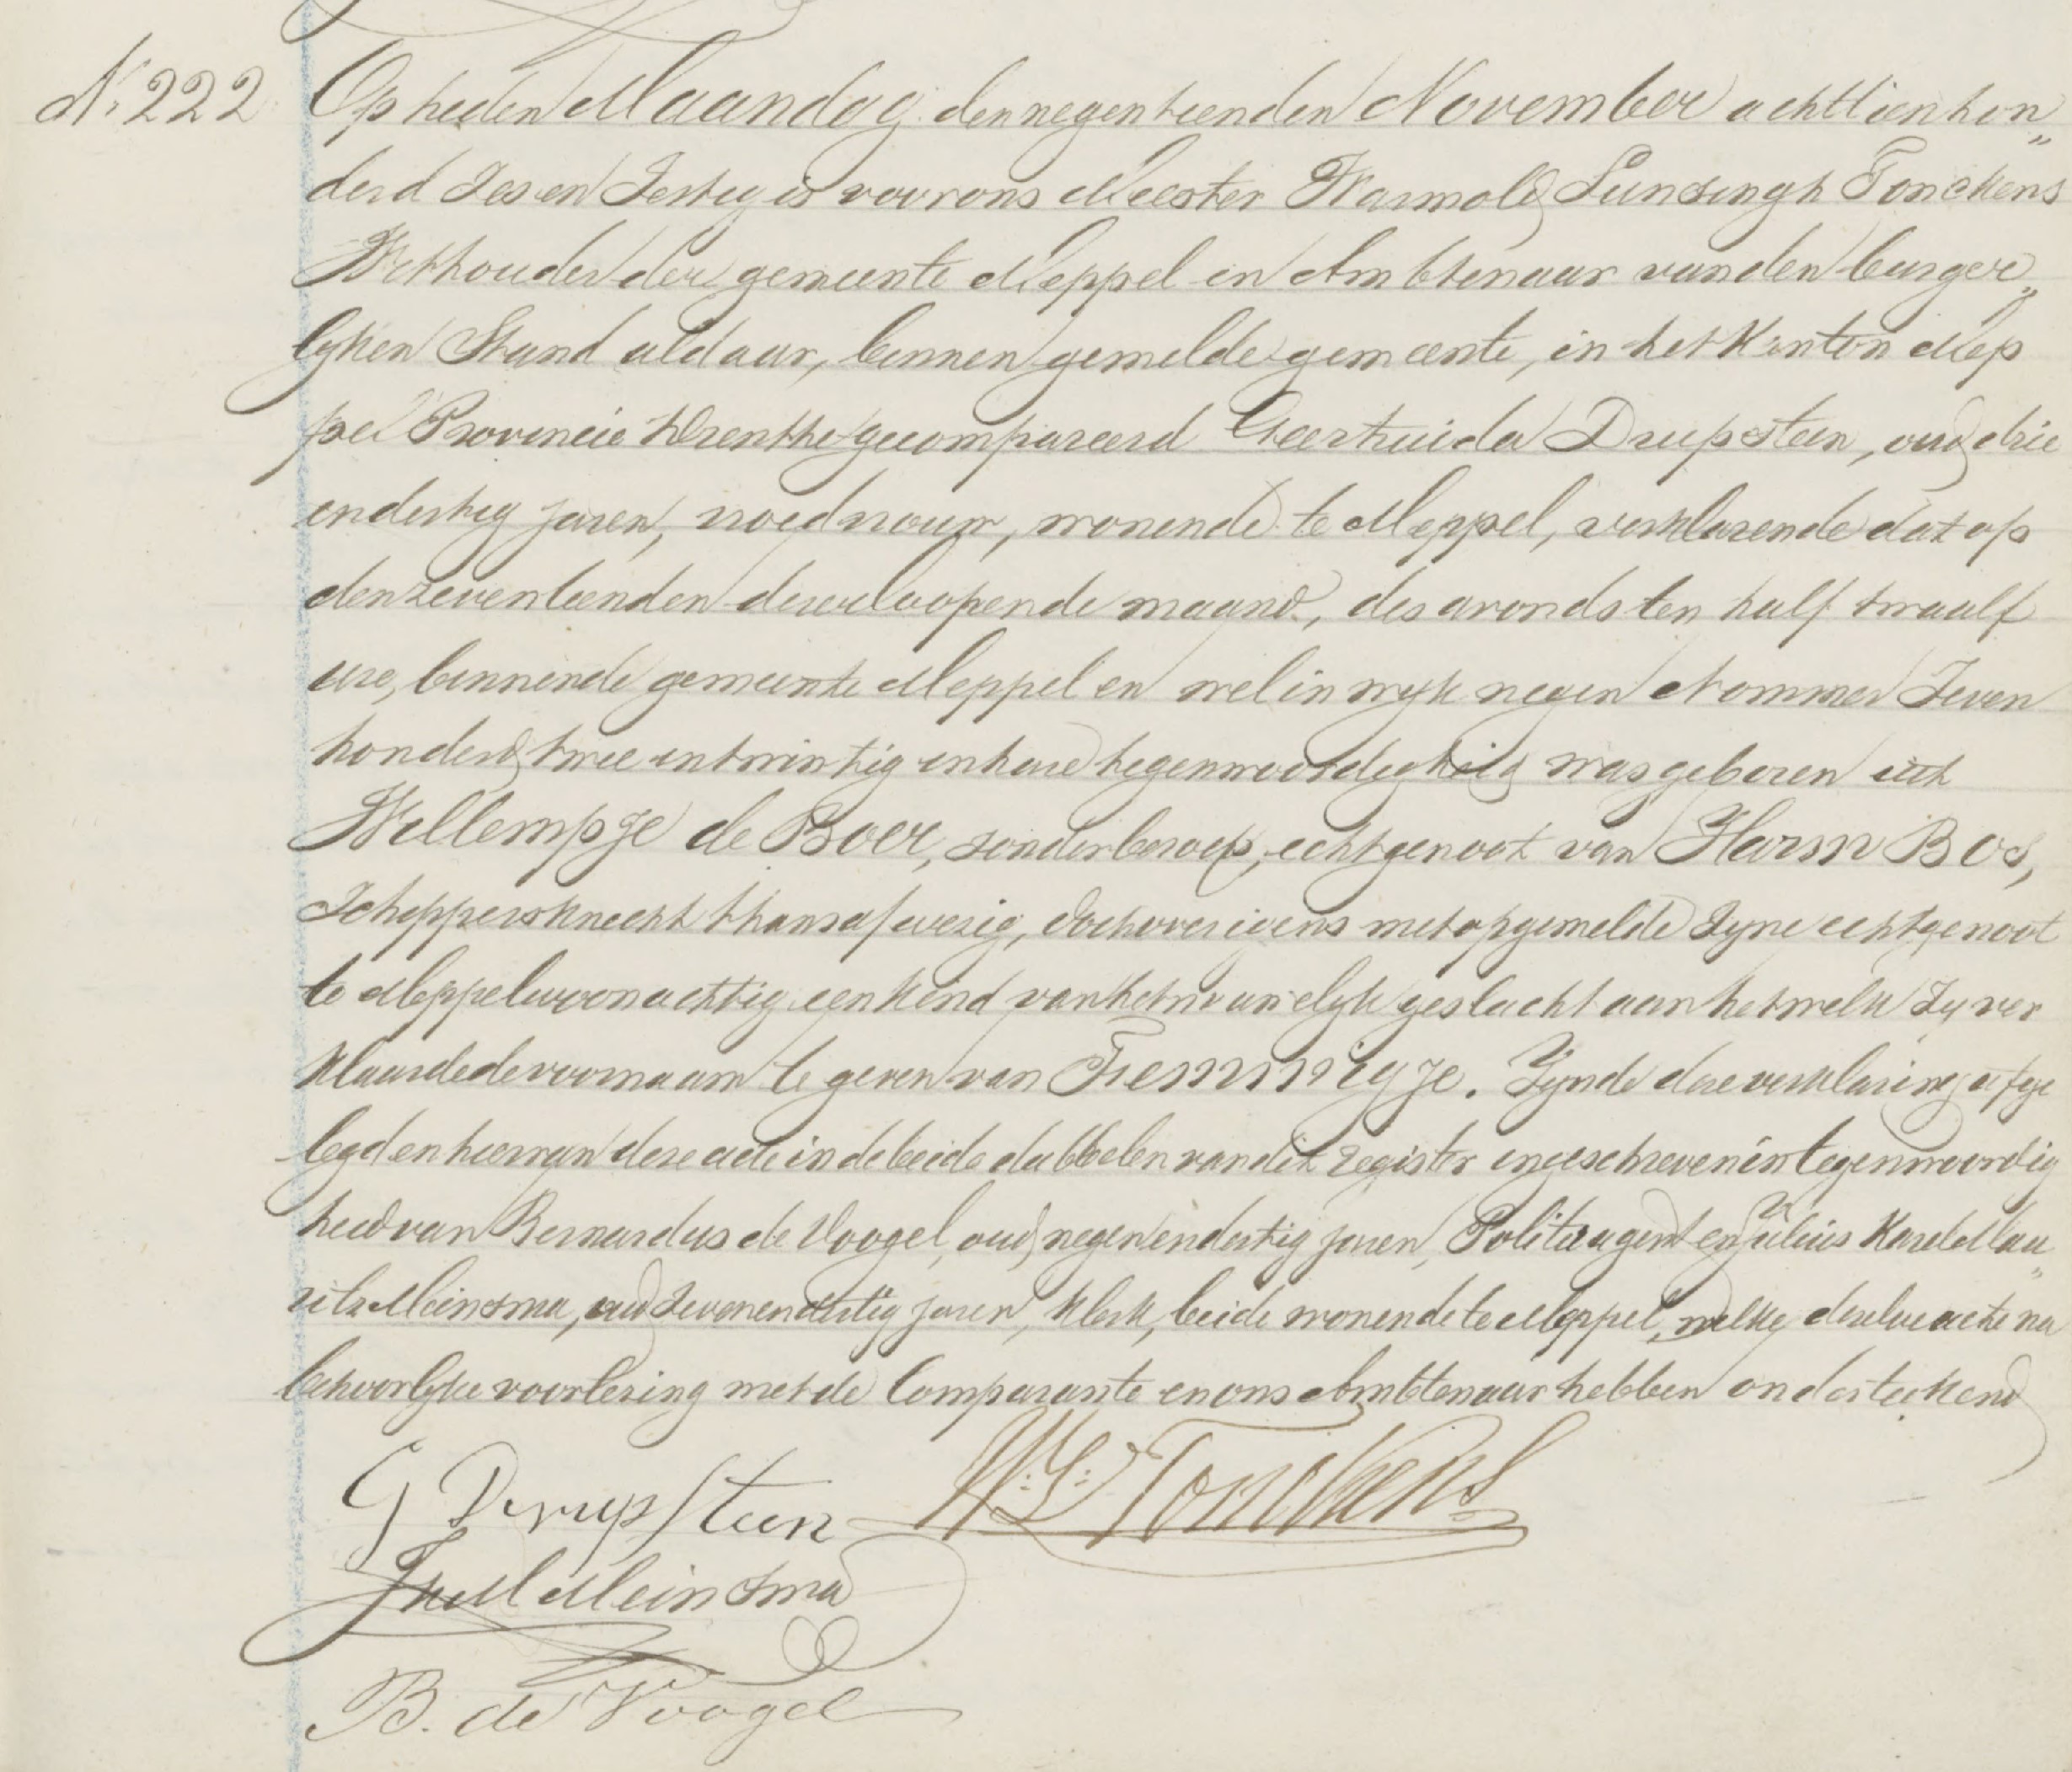 N. 222 Op heden Maandag den negentienden November achttienhon„
derd Zes en Zestig is voor ons Meester Warmold Lunsingh Tonckens
Wethouder der gemeente Meppel en Ambtenaar van den burger„
lyken Stand aldaar, binnen gemelde gemeente, in het Kanton Mep
pel Provincie Drenthe gecompareerd Geertruida Drupsteen, oud drie
en dertig jaren, vroedvrouw, wonende te Meppel, verklarende dat op
den zeventienden dezer loopende maand, des avonds ten half twaalf
ure, binnen de gemeente Meppel en wel in wyk negen Nommer Zeven
honderd twee en twintig in hare tegenwoordigheid was geboren uit
Willempje de Boer, zonder beroep, echtgenoot van Harm Bos,
Schippersknecht thans afwezig, doch overigens met opgemelde Zyne echtgenoot
te Meppel woonachtig een kind van het vrouwelyk geslacht aan hetwelk Zy ver
klaarde de voornaam te geven van Femmigje. Zynde deze verklaring afge
legd en hiervan deze acte in de beide dubbelen van dit register ingeschreven in tegenwoordig
heid van Bernardus de Voogel, oud negen en dertig jaren, Politie agent en Julius Karel Mau„
ritz Meinsma, oud Zeven en dertig jaren, Klerk, beide wonende te Meppel, welke dezelve acte na
behoorlyke voorlezing met de Comparante en ons Ambtenaar hebben onderteekend
G Drupsteen W: L: Tonckens
JKM Meinsma
B. de Voogel